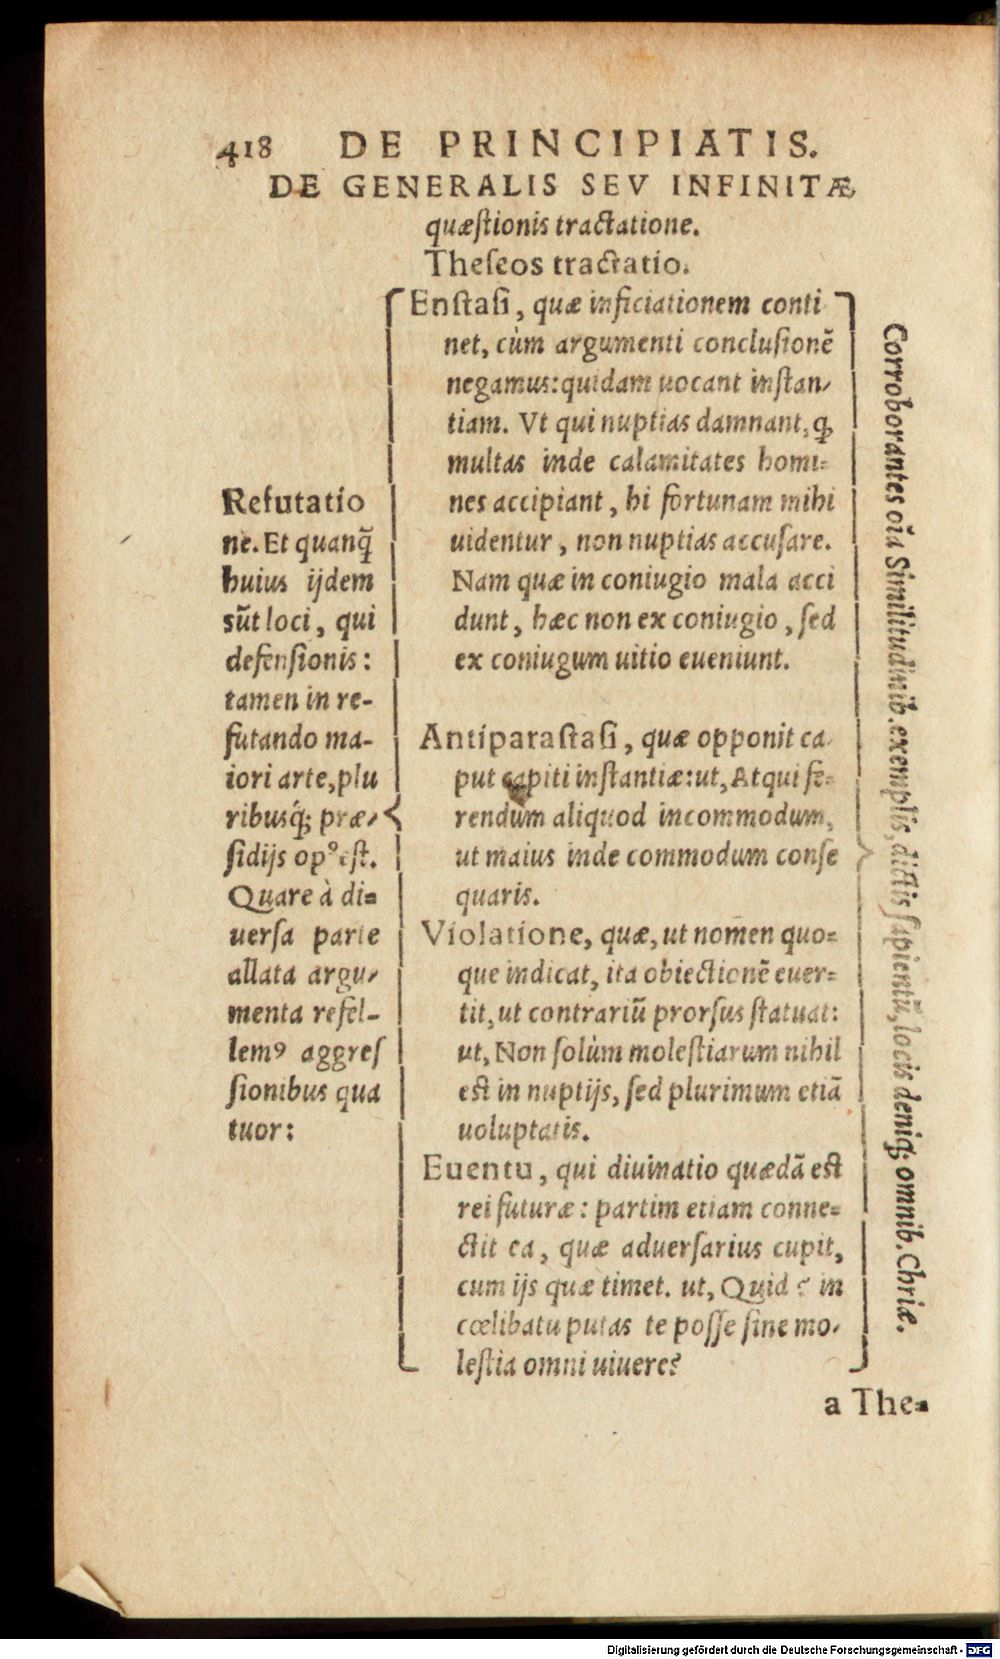 418 DE PRINCIPIATIS.
DE GENERALIS SEV INFINITÆ
quæſtionis tractatione.
Theſeos tractatio.
Refutatio
ne. Et quanq̃
huius ijdem
sũt loci, qui
defenſionis:
tamen in re-
futando ma-
iori arte, plu
ribusq́; præ-
ſidijs opꝰ eſt.
Quare à di-
uerſa parte
allata argu-
menta refel-
lemꝰ aggreſ
ſionibus qua
tuor:
Enſtaſi, quæ inficiationem conti
net, cùm argumenti concluſionẽ
negamus: quidam uocant inſtan-
tiam. Vt qui nuptias damnant, ꝙ
multas inde calamitates homi-
nes accipiant, hi fortunam mihi
uidentur, non nuptias accuſare.
Nam quæ in coniugio mala acci
dunt, hæc non ex coniugio, ſed
ex coniugum uitio eueniunt.
Antiparaſtaſi, quæ opponit ca-
put capiti inſtantiæ: ut, Atqui fe-
rendum aliquod incommodum,
ut maius inde commodum conſe
quaris.
Violatione, quæ, ut nomen quo-
que indicat, ita obiectionẽ euer-
tit, ut contrariũ prorſus ſtatuat:
ut, Non ſolùm moleſtiarum nihil
eſt in nuptijs, ſed plurimum etiã
uoluptatis.
Euentu, qui diuinatio quædã eſt
rei futuræ: partim etiam conne-
ctit ea, quæ aduerſarius cupit,
cum ijs quæ timet. ut, Quid? in
cœlibatu putas te poſſe ſine mo-
leſtia omni uiuere?
Corroborantes oĩa Similitudinib. exemplis, dictis ſapientũ, locis deniq; omnib. Chriæ.
a The-
Digitalisierung gefördert durch die Deutsche Forschungsgemeinschaft - DFG